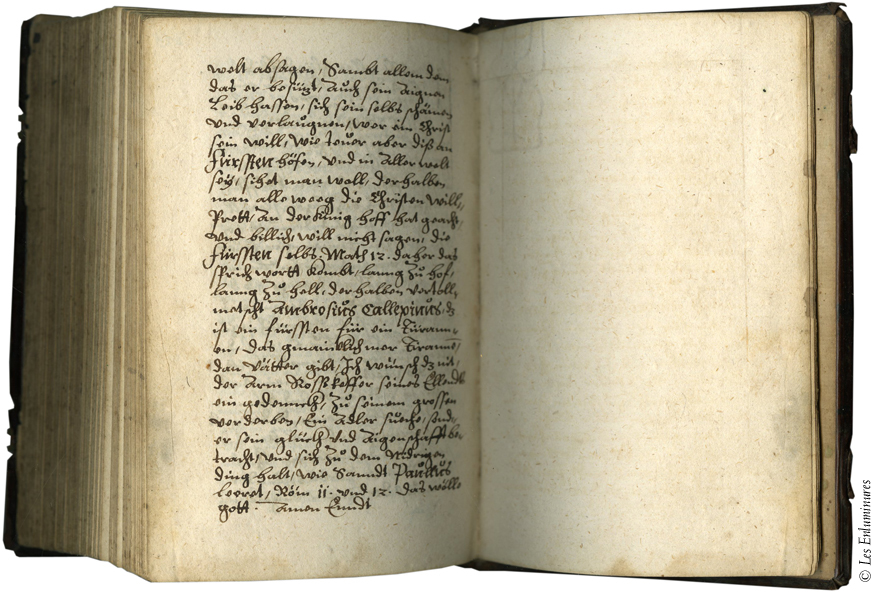 welt absagen, Sambt allem dem
das er besitzt, Auch sein Aignen
Leib hassen, sich sein selbs schämen
und verlaugnen, wer ein Christ
sein will, wie teuer aber diß an
Fürssten höfen, und in Aller welt
seÿ, sihet man woll, derhalben
man alle weeg die Christen will
Prett, An der König hoff hat geacht,
und billich, will nicht sagen, die
Fürssten selbs. Math 12. daher das
sprichwortt kombt, lanng zu hof,
lanng zu hell, derhalben
Ambrosius Callepinus, dz
ist ein fürssten für ein Türann
en, das gmainklich mer Tirannen,
dan Vätter gibt, Ich wünsch dz nit,
der Arm Rosskeffer seines Ellendts
ein gedennch, zu seinem grossen
verderben, Ein Adler sueche, sonder
er sein glückh und Aigenschafft be¬
tracht, und sich zu dem Nidrigen
ding halt, wie Sanndt Paullus
leeret, Röm 11. und 12. das wölle
gott. Amen Enndt
© Les Enluminures